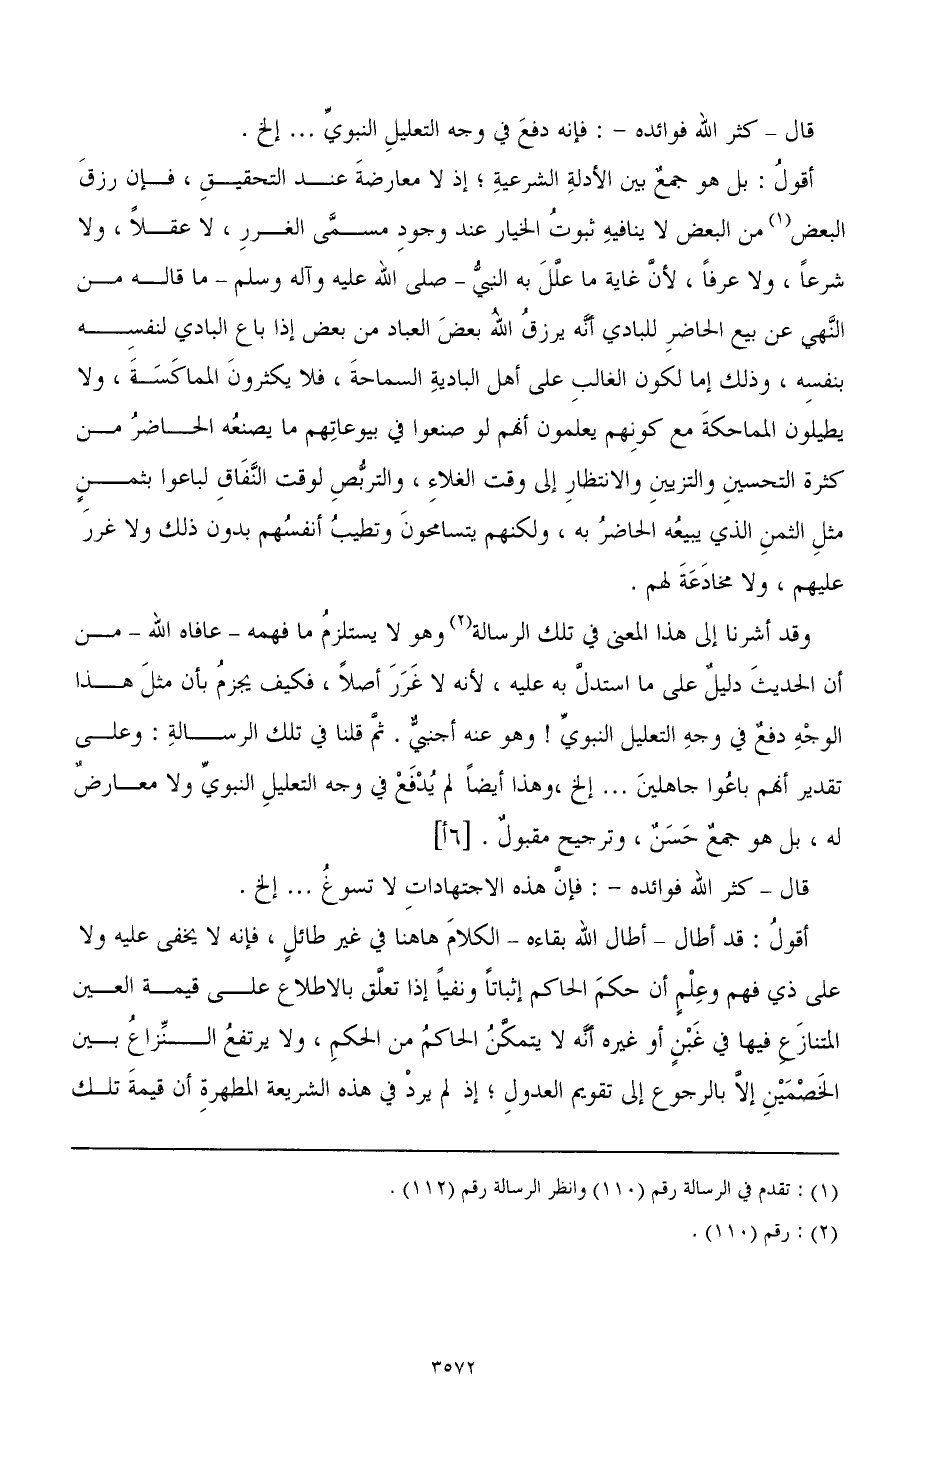 قال – كثر الله فوائده – : فإنه دفعَ في وجه التعليلِ النبويِّ ... إلخ .
أقولُ : بل هو جمعٌ بين الأدلةِ الشرعيةِ ؛ إذ لا معارضةَ عند التحقيقِ ، فإن رزقَ
البعض(١) من البعض لا ينافيهِ ثبوتُ الخيار عند وجودِ مسمَّى الغررِ ، لا عقلاً ، ولا
شرعاً ، ولا عرفاً ، لأنَّ غاية ما علَّلَ به النبيُّ – صلى الله عليه وآله وسلم – ما قاله من
النَّهي عن بيع الحاضرِ للبادي أنَّه يرزقُ اللهُ بعضَ العباد من بعض إذا باع البادي لنفسِه
بنفسه ، وذلك إما لكون الغالبِ على أهل الباديةِ السماحةَ ، فلا يكثرونَ المماكَسَةَ ، ولا
يطيلون المماحكةَ مع كونِهم يعلمون أنهم لو صنعوا في بيوعاتِهم ما يصنعُه الحاضرُ من
كثرة التحسينِ والتزيينِ والانتظارِ إلى وقت الغلاءِ ، والتربُّصِ لوقت النَّفَاقِ لباعوا بثمنٍ
مثلِ الثمنِ الذي يبيعُه الحاضرُ به ، ولكنهم يتسامحونَ وتطيبُ أنفسُهم بدون ذلك ولا غررَ
عليهم ، ولا مخادَعَةَ لهم .
وقد أشرنا إلى هذا المعنى في تلك الرسالة(٢) وهو لا يستلزمُ ما فهمه – عافاه الله – من
أن الحديثَ دليلٌ على ما استدلَّ به عليه ، لأنه لا غَرَرَ أصلاً ، فكيف يجزمُ بأن مثلَ هذا
الوجْهِ دفعٌ في وجهِ التعليل النبويِّ ! وهو عنه أجنبيٌّ . ثمَّ قلنا في تلك الرسالةِ : وعلى
تقدير أنهم باعُوا جاهلينَ ... إلخ ،وهذا أيضاً لم يُدْفَعْ في وجه التعليلِ النبويِّ ولا معارضٌ
له ، بل هو جمعٌ حَسَنٌ ، وترجيح مقبولٌ . [٦أ]
قال – كثر الله فوائده – : فإنَّ هذه الاجتهاداتِ لا تسوغُ ... إلخ .
أقولُ : قد أطال – أطال الله بقاءه – الكلامَ هاهنا في غير طائلٍ ، فإنه لا يخفى عليه ولا
على ذي فهم وعِلْمٍ أن حكمَ الحاكم إثباتاً ونفياً إذا تعلَّق بالاطلاع على قيمة العين
المتنازَعِ فيها في غَبْنٍ أو غيره أنَّه لا يتمكَّنُ الحاكمُ من الحكمِ ، ولا يرتفعُ النِّزاعُ بين
الخَصْمَيْنِ إلاَّ بالرجوع إلى تقويم العدولِ ؛ إذ لم يردْ في هذه الشريعة المطهرةِ أن قيمةَ تلك
(١) : تقدم في الرسالة رقم (١١٠) وانظر الرسالة رقم (١١٢) .
(٢) : رقم (١١٠) .
٣٥٧٢